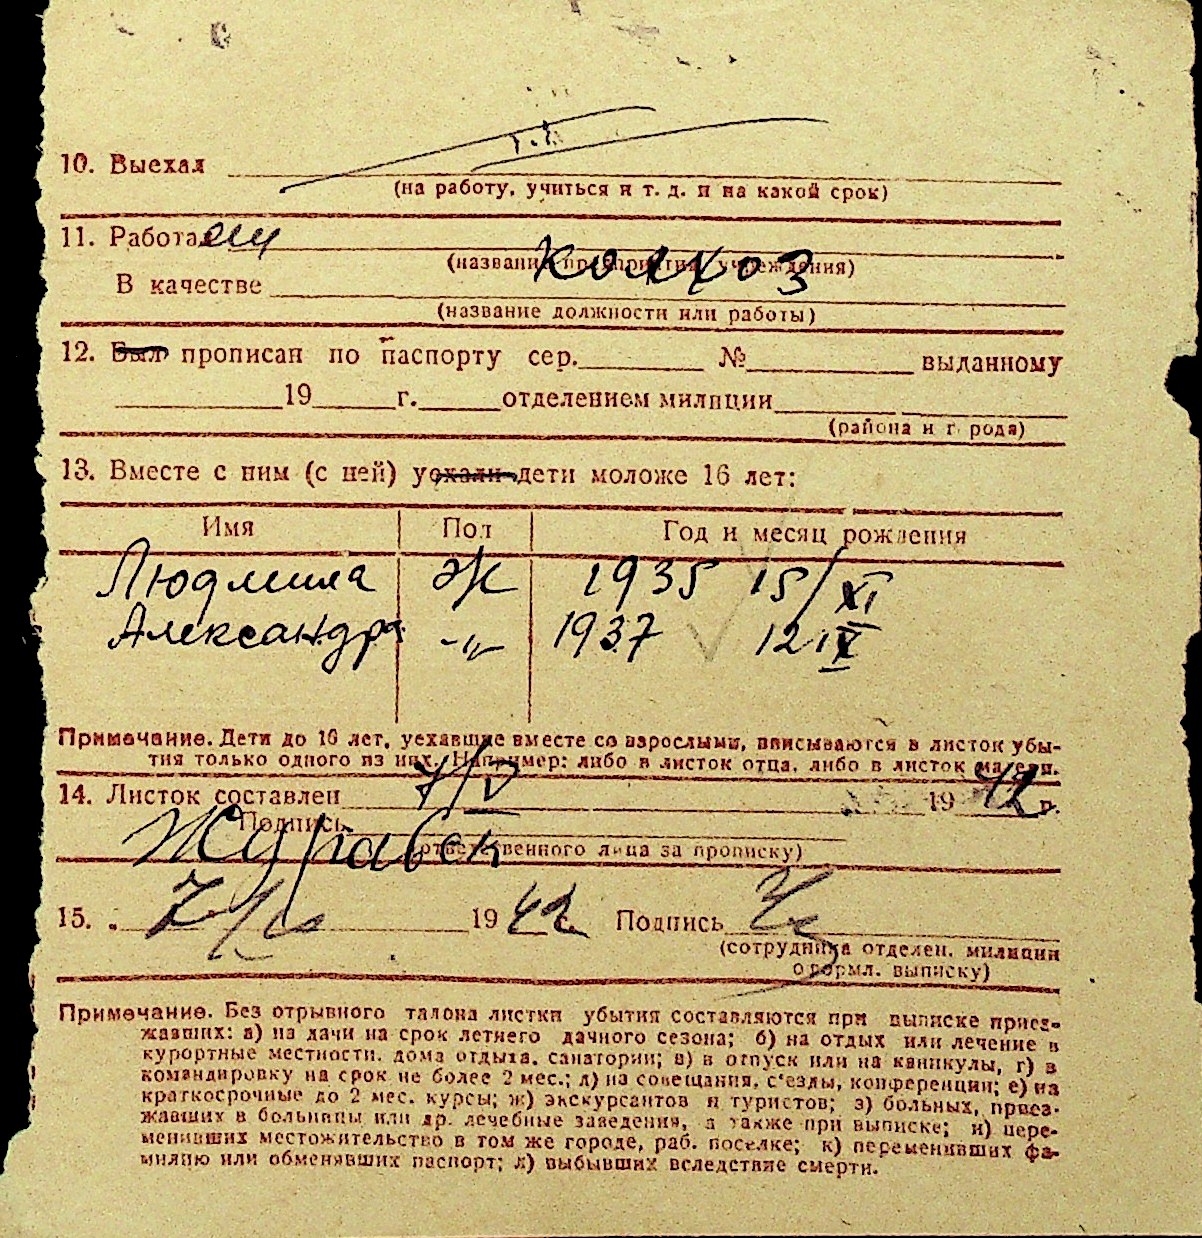 10. Выехал
(на работу, учиться и т. д. и на какой срок)
11. Работа
колхоз
(название предприятия, учреждения)
В качестве
(название должности или работы)
12. Был прописан по паспорту сер. № выданному
19 г. отделением милиции
(района и города)
13. Вместе с ним (с ней) уехали дети моложе 16 лет:
Имя Пол Год и месяц рождения
Людмила Ж 1935 15/XI
Александра -"- 1937 12 IX
Примечание. Дети до 16 лет, уехавшие вместе со взрослыми, вписываются в листок убы-
тия только одного из них. Например: либо в листок отца, либо в листок матери.
14. Листок составлен 7/V 1942 г.
Подпись
(ответственного лица за прописку)
15. 7 1942 г. Подпись
(сотрудника отделен. милиции
оформл. выписку)
Примечание. Без отрывного талона листки убытия составляются при выписке приез-
жавших: а) на дачи на срок летнего дачного сезона; б) на отдых или лечение в
курортные местности, дома отдыха, санатории; в) в отпуск или на каникулы, г) в
командировку на срок не более 2 мес.; д) на совещания, с'езды, конференции; е) на
краткосрочные до 2 мес. курсы; ж) экскурсантов и туристов; з) больных, приез-
жавших в больницы или др. лечебные заведения, а также при выписке; и) пере-
менивших местожительство в том же городе, раб. поселке; к) переменивших фа-
милию или обменявших паспорт; л) выбывших вследствие смерти.